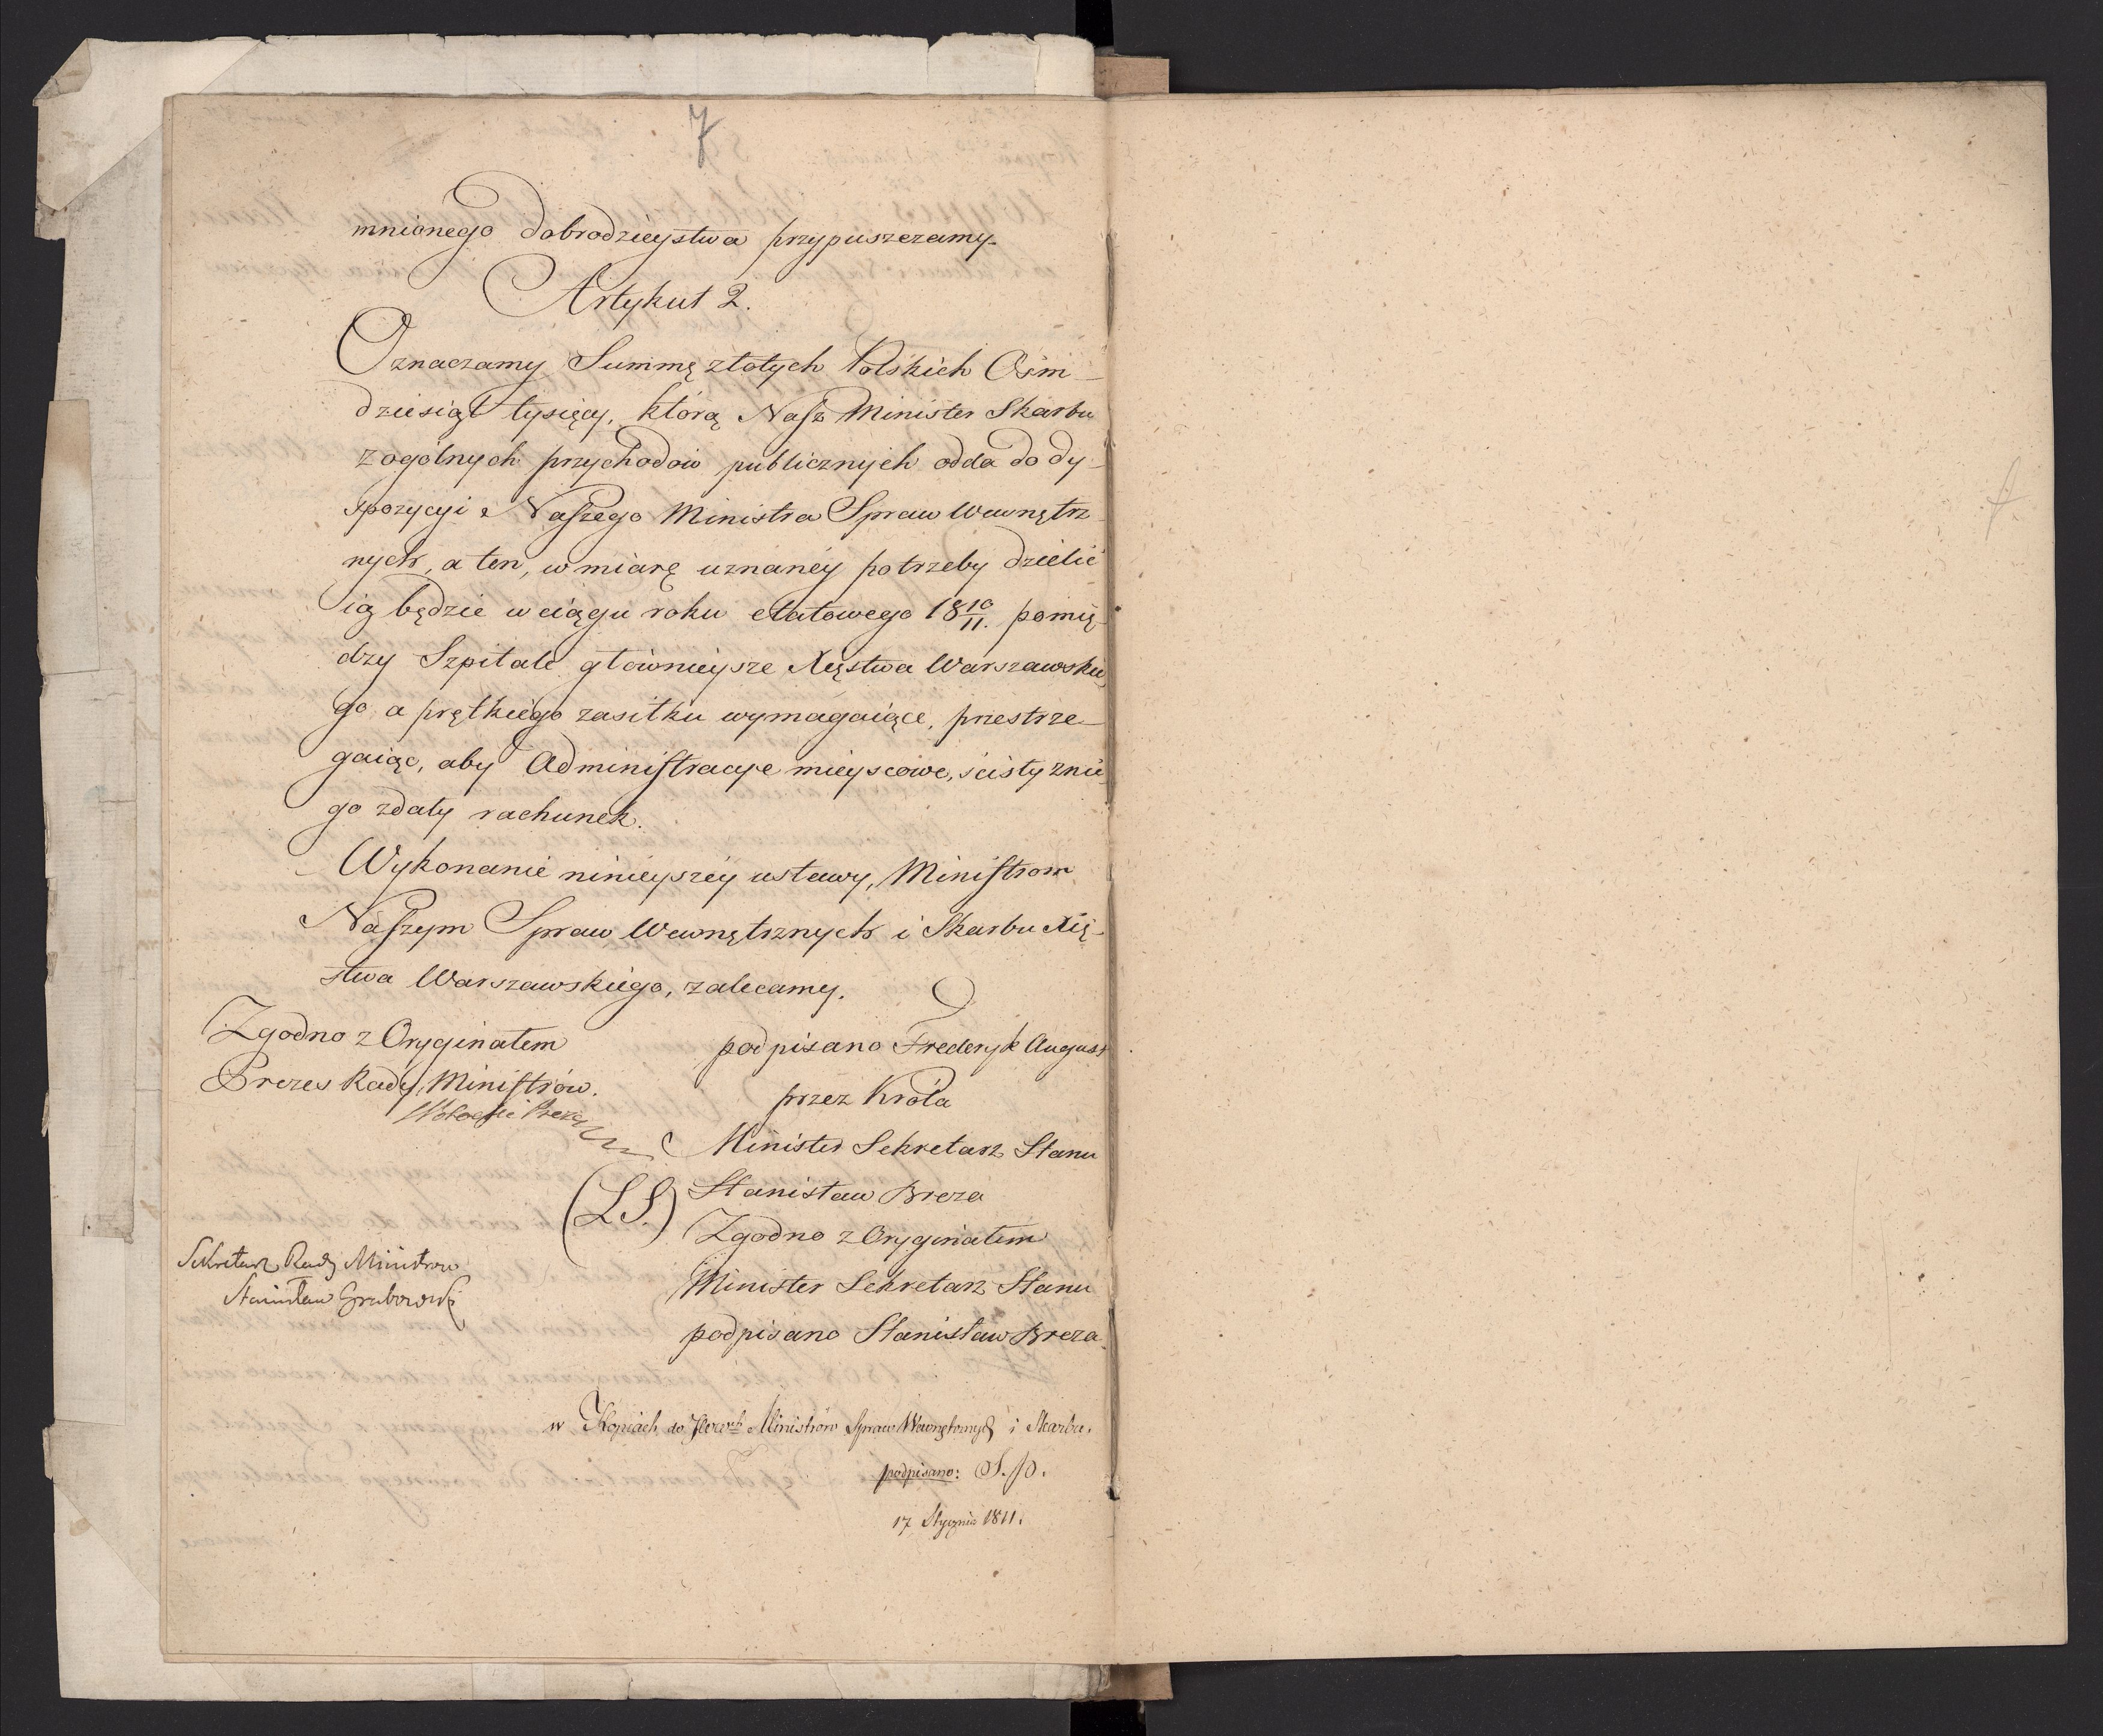 7
mnionego dobrodzieystwa przypuszczamy.
Artykuł 2.
Oznaczamy Summę złotych Polskich Ośm-
dziesiąt tysięcy, którą Nasz Minister Skarbu
z ogólnych przychodów publicznych odda do dy-
spozycyi Naszego Ministra Spraw Wewnętrz
nych, a ten, w miarę uznanéy potrzeby dzielić
ią będzie w ciągu roku etatowego 18 10/11. pomię-
dzy Szpitale główniejsze Xięstwa Warszawskie-
go, a prętkiego zasiłku wymagaiące, przestrze-
gaiąc, aby Administracye mieyscowe, ścisły z nie-
go zdały rachunek.
Wykonanie ninieyszéy ustawy, Ministrom
Naszym Spraw Wewnętrznych i Skarbu Xię-
stwa Warszawskiego, zalecamy.
Zgodno z Oryginałem
Prezes Rady Ministrów.
podpisano Frederyk August
przez Króla
Minister Sekretarz Stanu
(LS.) Stanisław Breza
Zgodno z Oryginałem
Minister Sekretarz Stanu
podpisano Stanisław Breza.
Sekretarz Rady Ministrow
Stanisław Grabowski
w Kopiach do Ministrów Spraw Wewnętrznych i Skarbu.
podpisano:
17 Stycznia 1811.